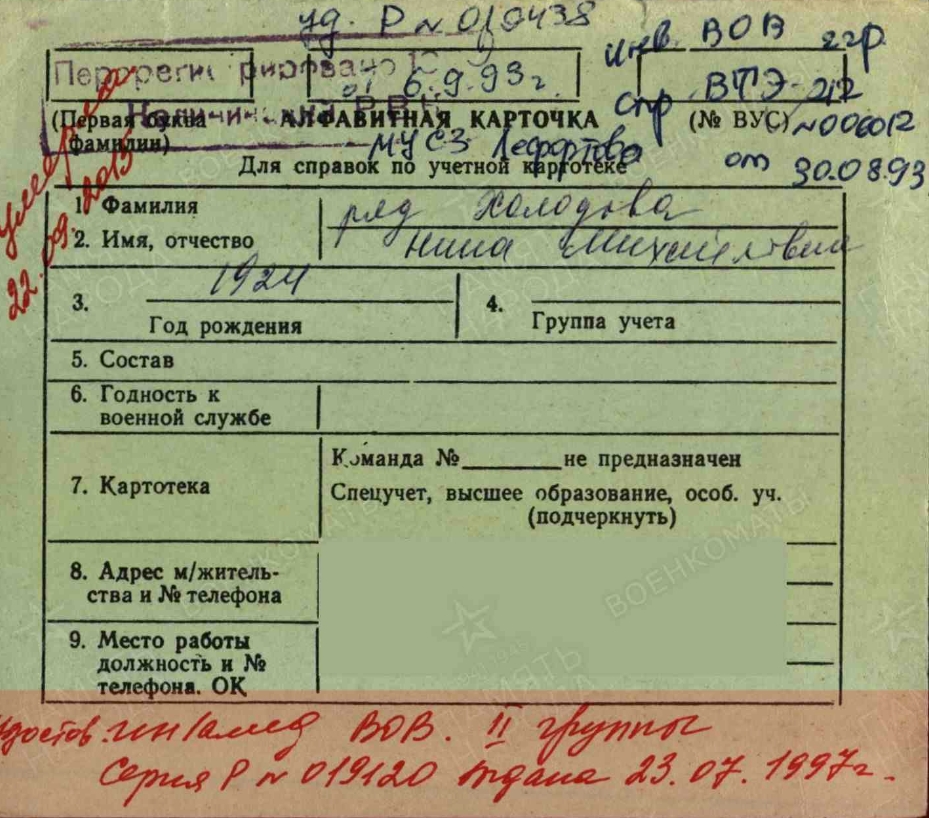 уд. Р № 010438
инв. ВОВ 2 гр.
Перерегистрировано
от 6.9.93г.
спр. ВТЭ-212
№006012
от 30.08.93
(Первая буква фамилии)
АЛФАВИТНАЯ КАРТОЧКА
(№ ВУС)
МУСЗ Лефортово
Для справок по учетной картотеке
умерла
22.09.2015
1. Фамилия ряд Холодова
2. Имя, отчество Нина Михайловна
3. 1924
Год рождения
4.
Группа учета
5. Состав
6. Годность к
военной службе
7. Картотека
Команда № ______ не предназначен
Спецучет, высшее образование, особ. уч.
(подчеркнуть)
8. Адрес м/житель-
ства и № телефона
9. Место работы
должность и №
телефона. ОК
Удостов. инвалид ВОВ. II группы
Серия Р № 019120 выдана 23.07.1997г.
ПАМЯТЬ НАРОДА
ВОЕНКОМАТЫ